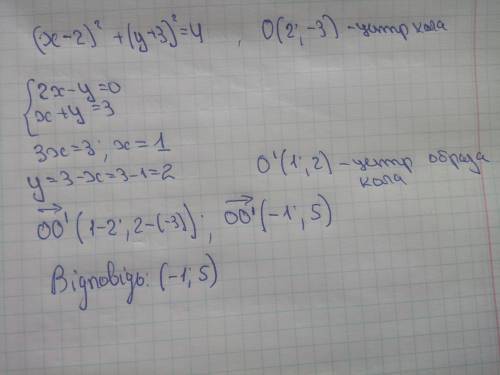 (x-2)² + (y+3)² = 4 , O(2; -3) - центр кола
{2x-y=0
x+y=3
3x=3; x=1
y=3-x=3-1=2 O'(1; 2) - центр образа кола
OO'(1-2; 2-(-3)); OO'(-1; 5)
Відповідь: (-1; 5)